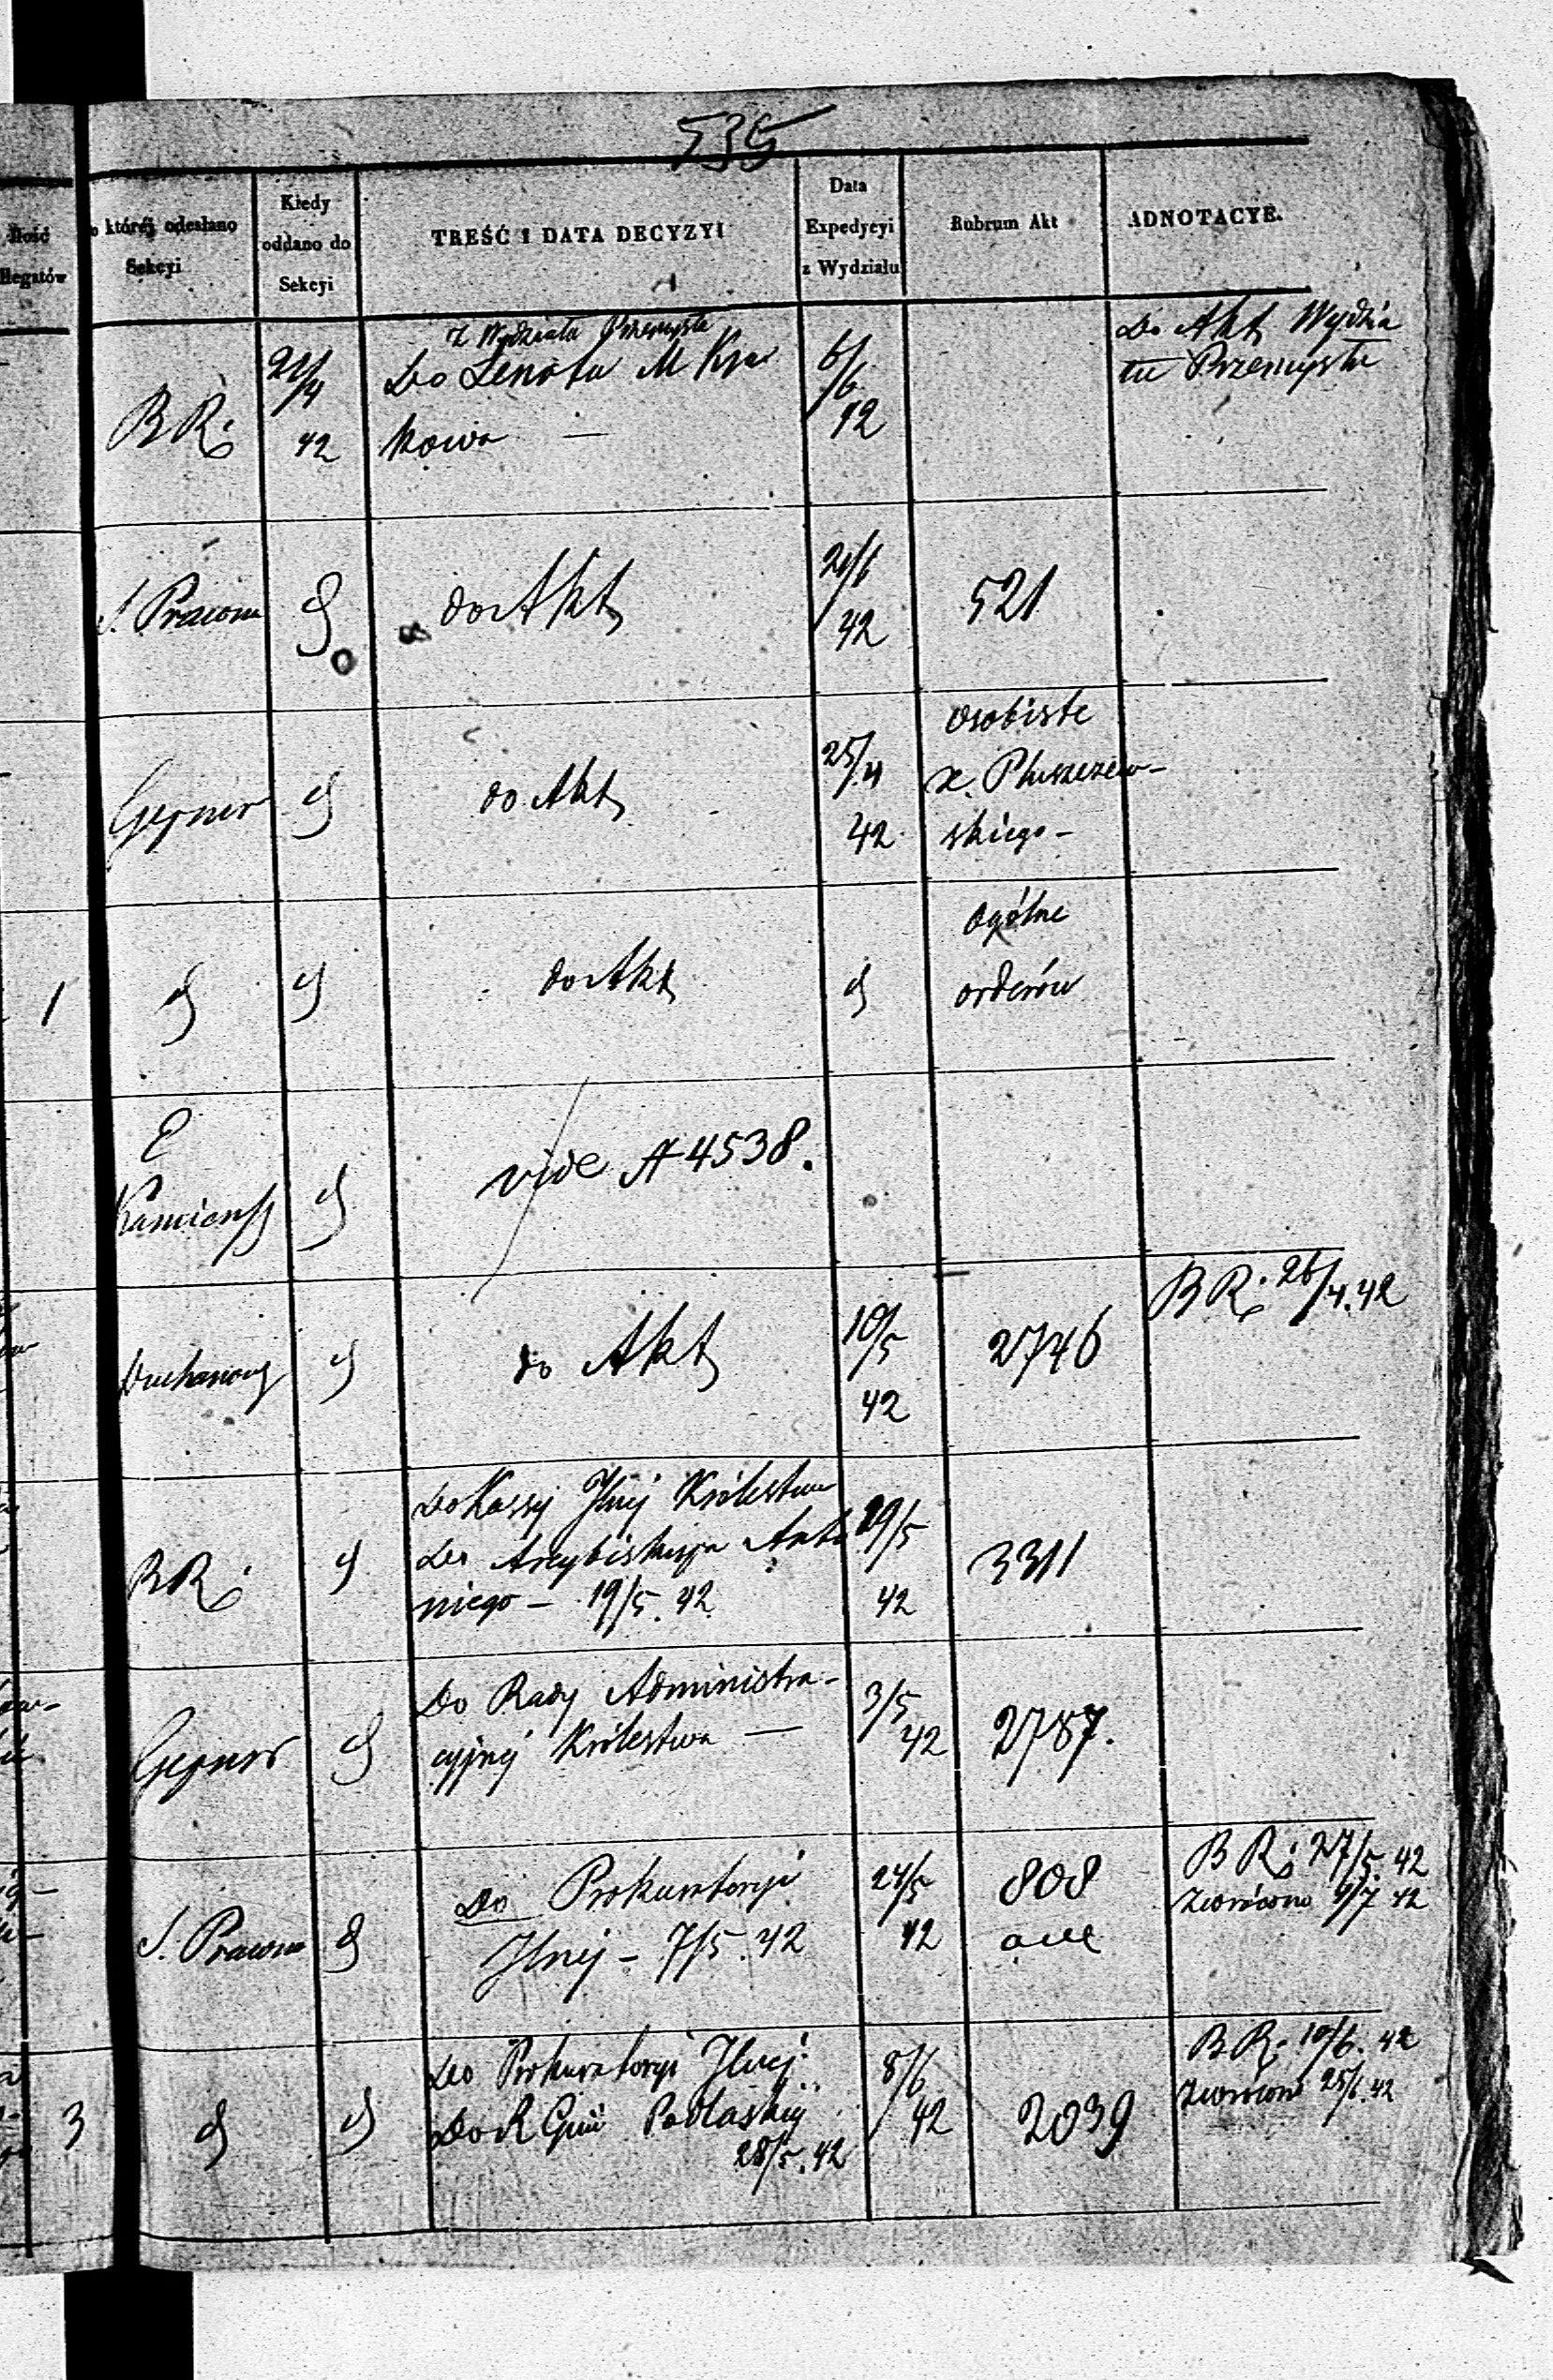 535
Ilość
Alegatów
o któréj odesłano
Sekcyi
Kiedy
oddano do
Sekcyi
TREŚĆ I DATA DECYZYI
Data
Expedycyi
z Wydziału
Rubrum Akt
ADNOTACYE.
BR.
21/4
42
Z Wydziału Przemysłu
Do Senatu M Kra
kowa —
6/6
42
Do Akt Wydzia
łu Przemysłu
S. Prawna
do Akt
42
521
Gepner
do Akt
25/4
42
Osobiste
x. Pluszczew-
skiego —
1
do Akt
Ogólne
orderów
Kamieńs
vide A 4538.
do Akt
10/5
42
2746
BR. 26/4.42
BR.
Do Kassy Jlnej Królestwa
Do Arcybiskupa Anto
niego — 19/5. 42
19/5
42
3311
Gepner
Do Rady Administra-
cyjnej Królestwa —
3/5
42
2787.
S. Prawna
Do Prokuratoryi
Jlnej — 7/5. 42
24/5
42
808
BR. 27/5. 42
Zwrócono 9/7 42
3
Do Prokuratoryi Jlnej
Do R Gnii Podlaskiej
28/5. 42
8/6
42
2039
BR. 10/6. 42
Zwrócono 25/6. 42